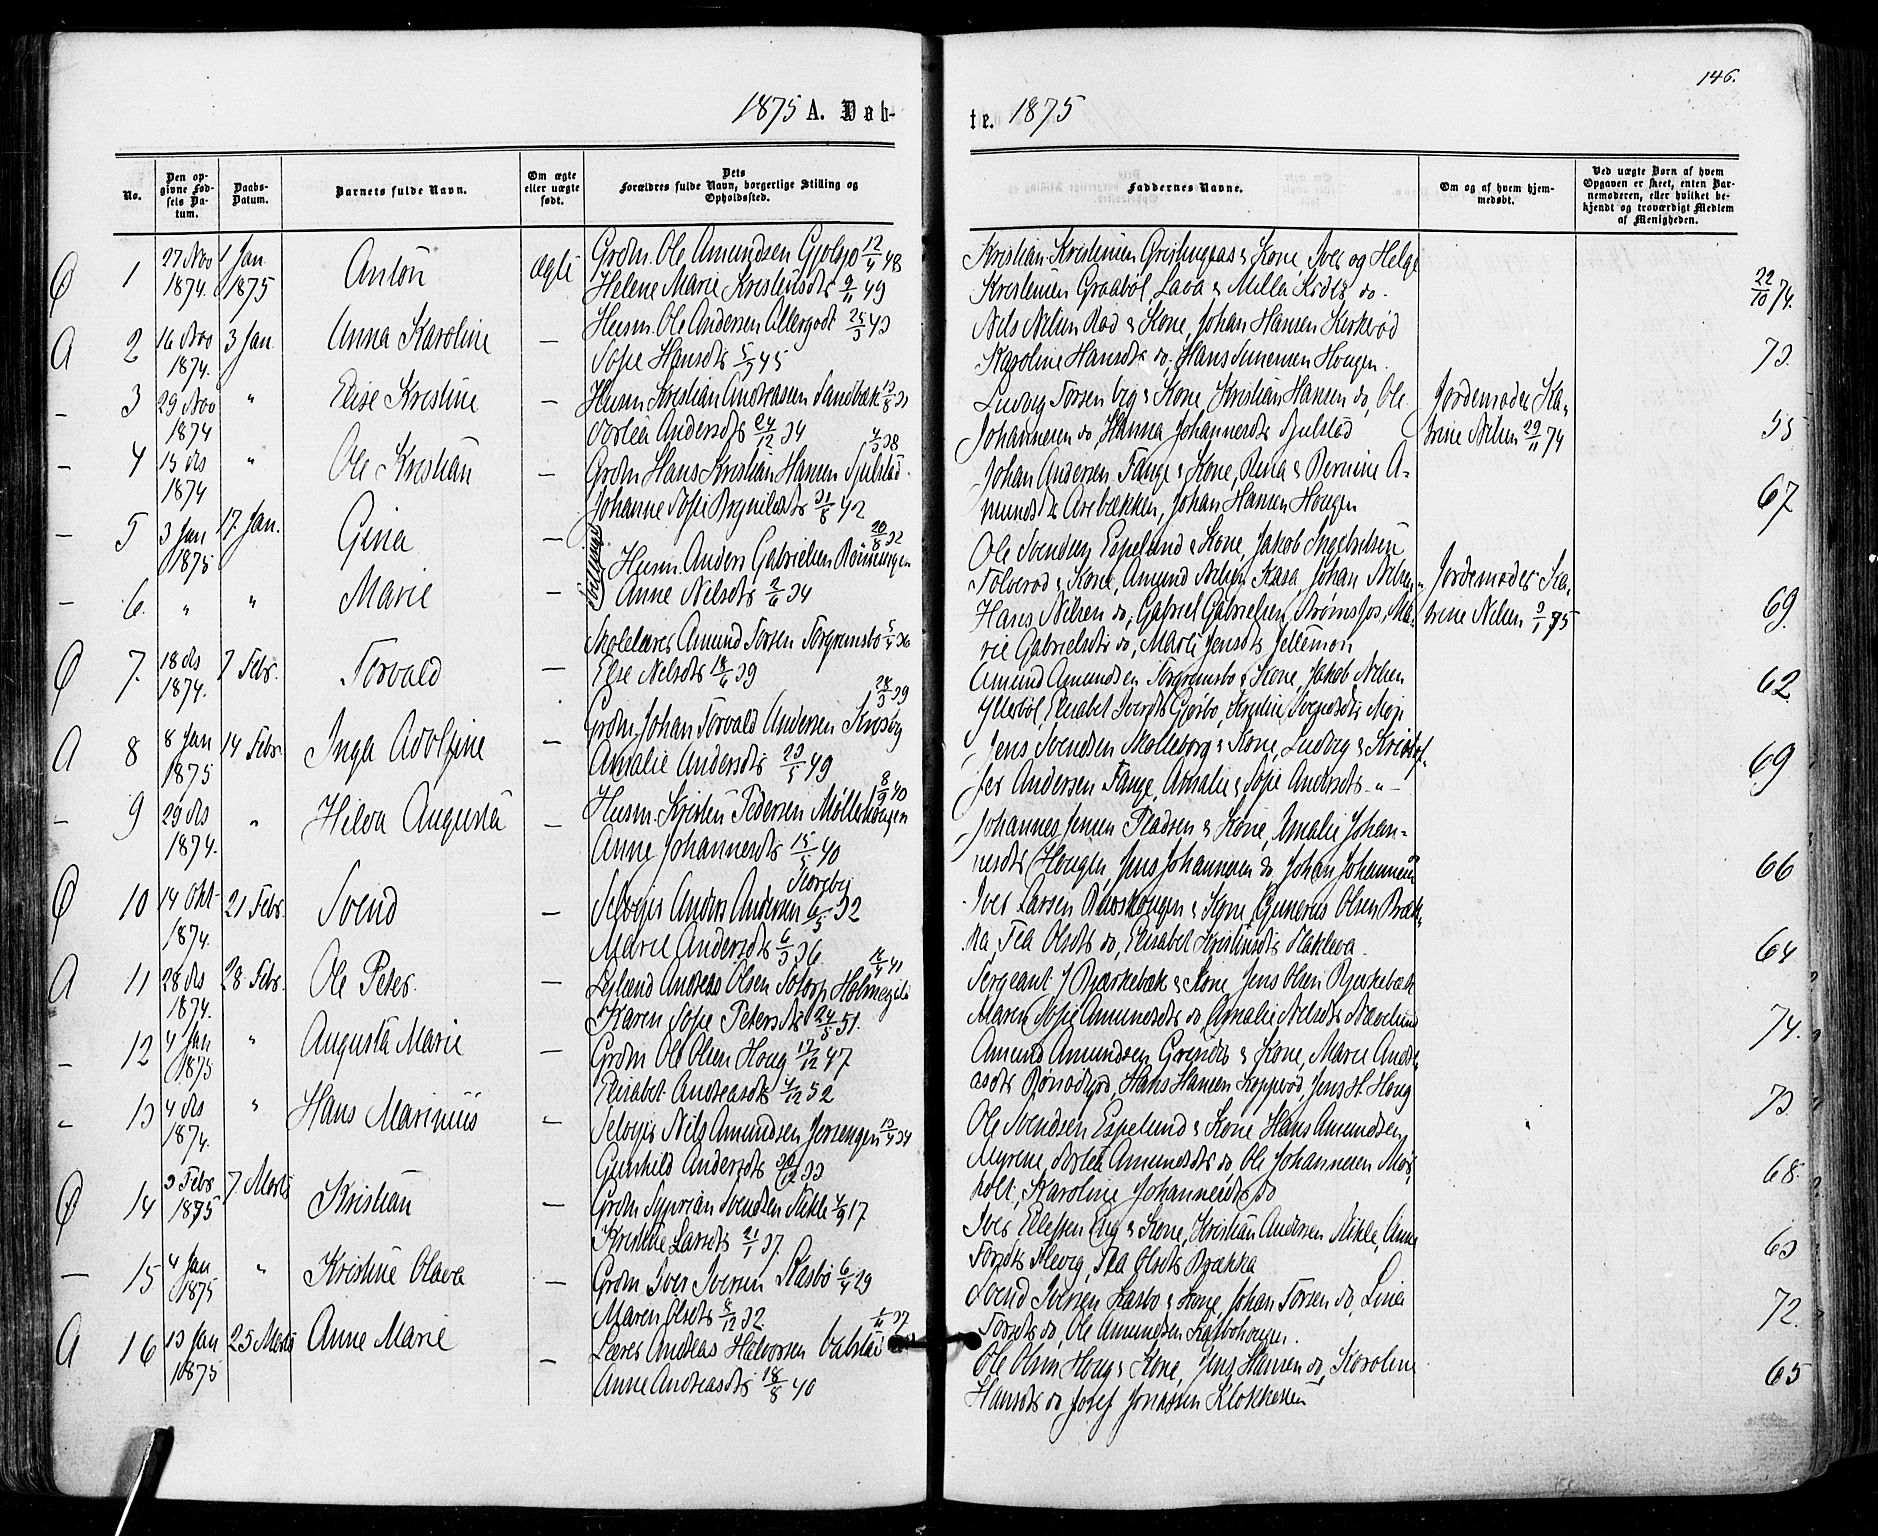 146.
1875 A. Døb-
te. 1875
No.
Den op-
givne Fød-
sels Da-
tum.
Daabs-
Datum.
Barnets fulde Navn.
Om ægte
eller uægte
født.
Dets
Forældres fulde Navn, borgerlige Stilling og
Opholdssted.
Faddernes Navne.
Om og af hvem hjem-
medøbt.
Ved uægte Børn af hvem
Opgaven er skeet, enten Bar-
nemoderen, eller hvilket be-
kjendt og troværdigt Medlem
af Menigheden.
1 27 Nov 1874. 1 Jan 1875 Anton ægte
Grdm. Ole Amundsen Gjølsjø 12/4 48
Helene Marie Kristensdtr 9/11 49
Kristian Kristensen & Kone, Iver og Helge
Kristensen Graabøl, Lava & Milla do.
22/10 74.
2 16 Nov 1874. 3 Jan Anna Karoline —
Husm. Ole Andersen Ullergodt 25/3 43
Sofie Hansdtr 5/7 45
Nils Nilsen Rød & Kone, Johan Hansen Kirkerød
Karoline Hansdtr do, Hans Simensen Hougen.
73.
3 29 Nov 1874 " Elise Kristine —
Husm Kristian Andreasen Sandbæk 13/8 31
Dortea Andersdtr 24/12 34
Ludvig Torsen & Kone Kristian Hansen do, Ole
Johannesen do Hanna Johannesdtr Tjulstad
Jordemoder Ka-
trine Nilsen 29/11 74
55
4 15 des 1874 " Ole Kristian —
Grdm Hans Kristian Hansen Tjulstad 4/3 38
Johanne Sofie 31/8 42
Johan Andersen Fange & Kone, Rina & Bernine A-
mundsdtr Aarbækken, Johan Hansen Hougen
67
5 3 Jan 1875 17. Jan. Gina —
6. " " Marie —
Tvillinger
Husm. Anders Gabrielsen Rønningen 20/8 32
Anne Nilsdtr 2/6 34
Ole Svendsen Espelund & Kone, Jakob Ingebretsen
Tolverød & Kone, Amund Nilsen Kasa, Johan Nilsen
Hans Nilsen do, Gabriel Gabrielsen Strømsfos, Ma-
rie Gabrielsdtr do, Marte Jensdtr
Jordemoder Ka-
trine Nilsen 3/1 75
69.
7. 18 des 1874. 7 Febr. Torvald —
Skolelærer Amund Torsen Torgrimsbø 5/4 36
Else Nilsdtr 18/6 39
Amund Amundsen Torgrimsbø & Kone, Jakob Nilsen
Elisabet Iversdtr
62.
8 8 Jan 1875 14 Febr. Inga Adolfine —
Grdm Johan Torvald Andersen Krosby 28/3 39
Amalie Andersdtr 23/5 49
Jens Svendsen Molleborg & Kone, Ludvig & Kristof-
fer Andersen Fange, Amalie & Sofie Andersdtr - " -
69
9 29 des 1874. " Hilda Augusta —
Husm. Kristen Pedersen Møllerhougen 8/9 40
Anne Johannesdtr 15/5 40
Johannes Jensen Pladsen & Kone, Amalie Johan-
nesdtr Hougen, Jens Johannesen do, Johan Johannesen
66
10 14 Okt 1874. 21 Febr. Svend —
Selveier Anders Andersen 6/5 32
Marie Andersdtr 6/3 36
Iver Larsen & Kone Gunerius Olsen Bræk-
ka, Tea Olsdtr do, Elisabet Kristensdtr
64
11 28 des 1874. 28 Febr. Ole Peter —
Leilænd Andreas Olsen Holmegile 14/4 41
Karen Sofie Petersdtr 24/5 51.
Sergeant Bjerkebæk & Kone Jens Olsen Bjerkebæk
Maren Sofie Amundsdtr do, Amalie Nilsdtr
74.
12 4 Jan 1875 " Augusta Marie —
Grdm Ole Olsen Houg 17/12 47
Elisabet Andreasdtr 4/12 52
Amund Amundsen & Kone, Marie Andre-
asdtr, Hans Hansen Kopperød, Jens H. Houg
73.
13 4 des 1874. " Hans Marinius —
Selveier Nils Amundsen Jerrengen 13/4 34
Gunhild Andersdtr 30/12 33
Ole Svendsen Espelund & Kone Hans Amundsen
Myrene, Dortea Amundsdtr do Ole Johannesen Mør-
holt, Karoline Johannesdtr do
68.
14 3 Febr 1875 7. Marts Kristian —
Grdm Syprian Svendsen 4/9 17
Kristine Larsdtr 21/1 37.
Iver Ellefsen Eng & Kone, Kristian Andersen, Anne
Torsdtr, Tea Olsdtr Brækka
63
15 4 Jan 1875 " Kristine Olava —
Grdm Iver Iversen Kasbo 6/4 29
Maren Olsdtr 8/12 32.
Svend Iversen Kasbo & Kone, Johan Torsen do, Lina
Torsdtr do, Ole Amundsen Kasbohougen.
72.
16 13 Jan 1875 25 Marts Anne Marie —
Lærer Andreas Halvorsen
Anne Andreasdtr 18/8 40
Ole Olsen Houg & Kone, Jens Hansen do, Karoline
Hansdtr do Josef Jonassen
65